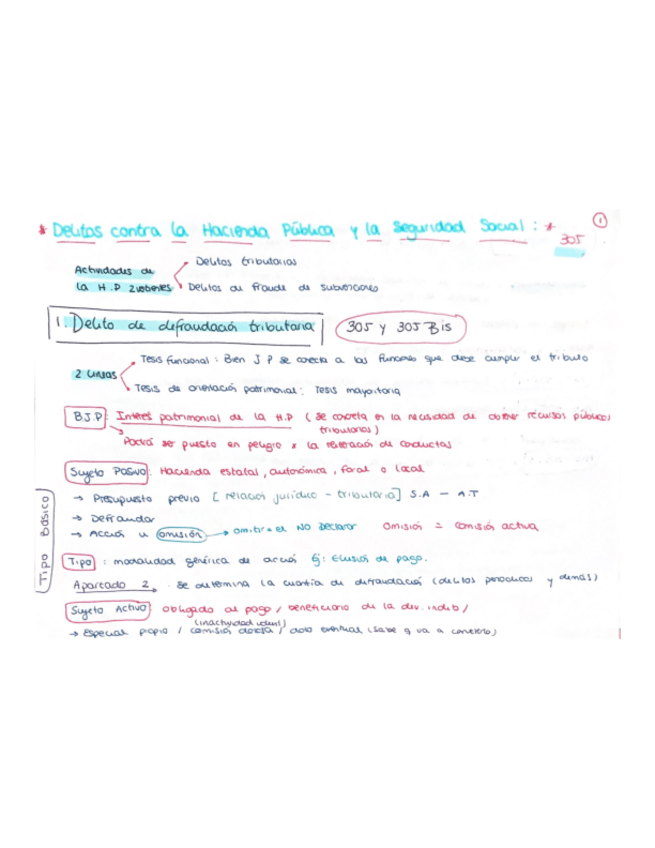 * Delitos contra la Hacienda Pública y la Seguridad Social : * 305
1
Actividades de la H.P
Delitos tributarios
Delitos de fraude de subvenciones
1. Delito de defraudación tributaria
305 y 305 Bis
2 líneas
Tesis funcional : Bien J P se conecta a las funciones que debe cumplir el tributo
Tesis de orientación patrimonial : Tesis mayoritaria
B.J.P : Interes patrimonial de la H.P (se concreta en la necesidad de obtener recursos públicos
tributarios)
Podrá ser puesto en peligro x la reiteración de conductas
Sujeto Pasivo : Hacienda estatal, autonómica, foral o local
Tipo Básico
→ Presupuesto previo [relación jurídico - tributaria] S.A - A.T
→ Defraudar
→ Acción u omisión → omitir = el NO Declarar Omisión = Comisión activa
Tipo : modalidad genérica de acción Ej: Elusión de pago.
Apartado 2. se determina la cuantía de defraudación (delitos periodicos y demás)
Sujeto Activo : obligado al pago / beneficiario de la dev. indeb /
→ Especial propio / comisión dolosa / dolo eventual (sabe q va a cometerlo)